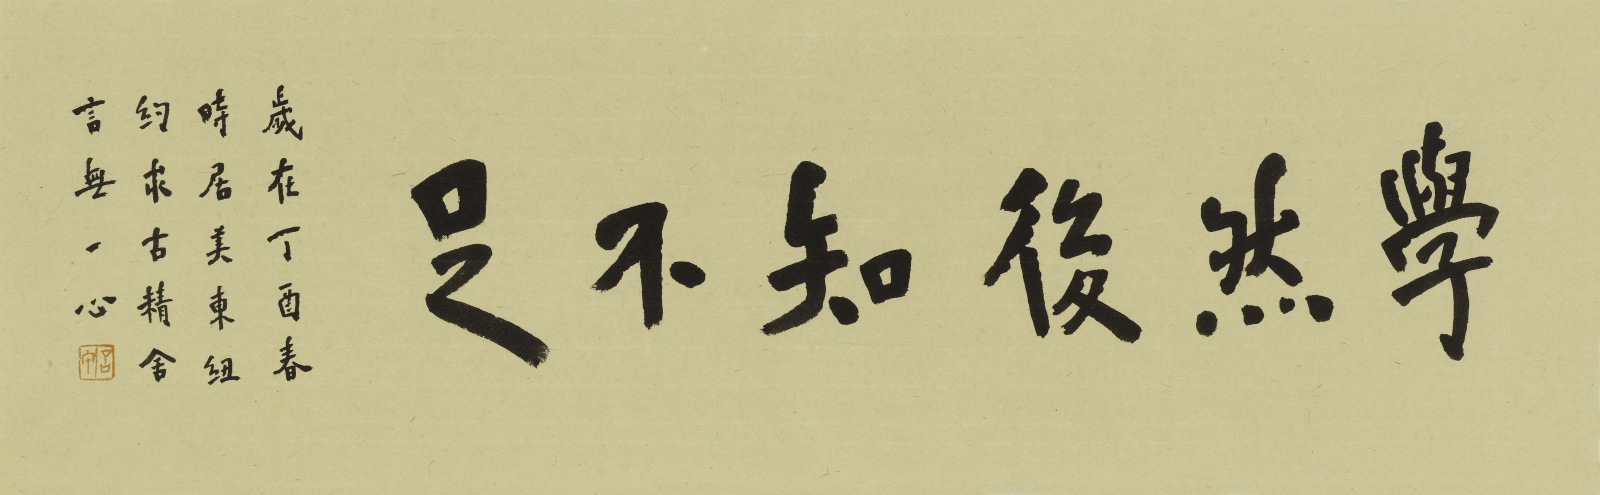 學然後知不足
歲在丁酉春
時居美東紐
約求古精舍
言無一心